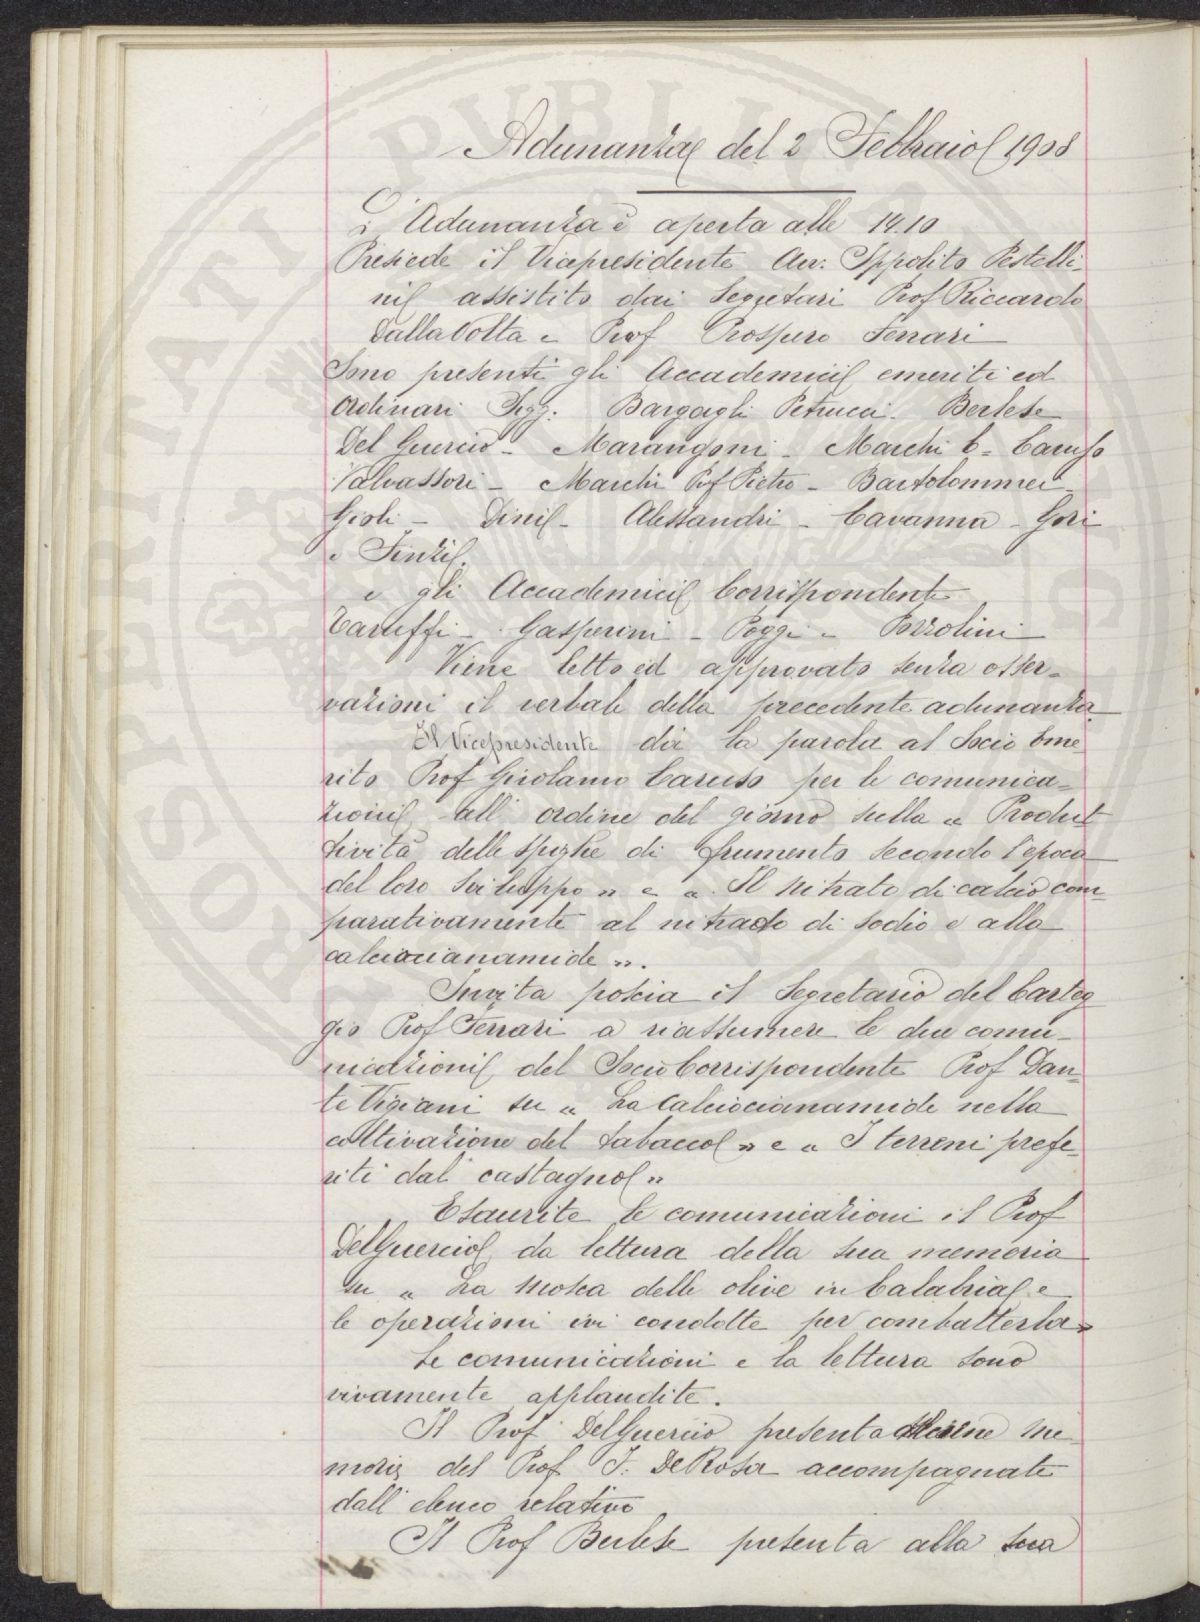 Adunanza del 2 Febbraio 1908
L'Adunanza è aperta alle 14.10
Presiede il Vicepresidente Avv. Ippolito Pestelli-
ni assistito dai Segretari Prof Riccardo
Dalla Volta e Prof Prospero Ferrari
Sono presenti gli Accademici emeriti ed
Ordinari Sigg: Bargagli Petrucci. Berlese
Del Guercio - Marangoni - Marchi E - Caruso
Valvassori - Marchi Prof Pietro - Bartolommei
Gioli - Dini - Alessandri - Cavanna - Gori
e Tenti
e gli Accademici Corrispondenti
Taruffi - Gasperini - Poggi - Pozzolini
Viene letto ed approvato senza osser-
vazioni il verbale della precedente adunanza
Il Vicepresidente dà la parola al Socio Eme
rito Prof Girolamo Caruso per le comunica-
zioni all'ordine del giorno sulla « Produt
tività delle spighe di frumento secondo l'epoca
del loro sviluppo » e « Il nitrato di calcio com-
parativamente al nitrato di sodio e alla
calciocianamide ».
Invita poscia il Segretario del Carteg
gio Prof Ferrari a riassumere le due comu-
nicazioni del Socio Corrispondente Prof Dan-
te Vigiani su « La Calciocianamide nella
coltivazione del tabacco » e « I terreni prefe-
riti dal castagno »
Esaurite le comunicazioni il Prof
Del Guercio da lettura della sua memoria
su « La mosca delle olive in Calabria e
le operazioni ivi condotte per combatterla »
Le comunicazioni e la lettura sono
vivamente applaudite.
Il Prof Del Guercio presenta alcune me
morie del Prof F. De Rosa accompagnate
dall'elenco relativo
Il Prof Berlese presenta alla sua